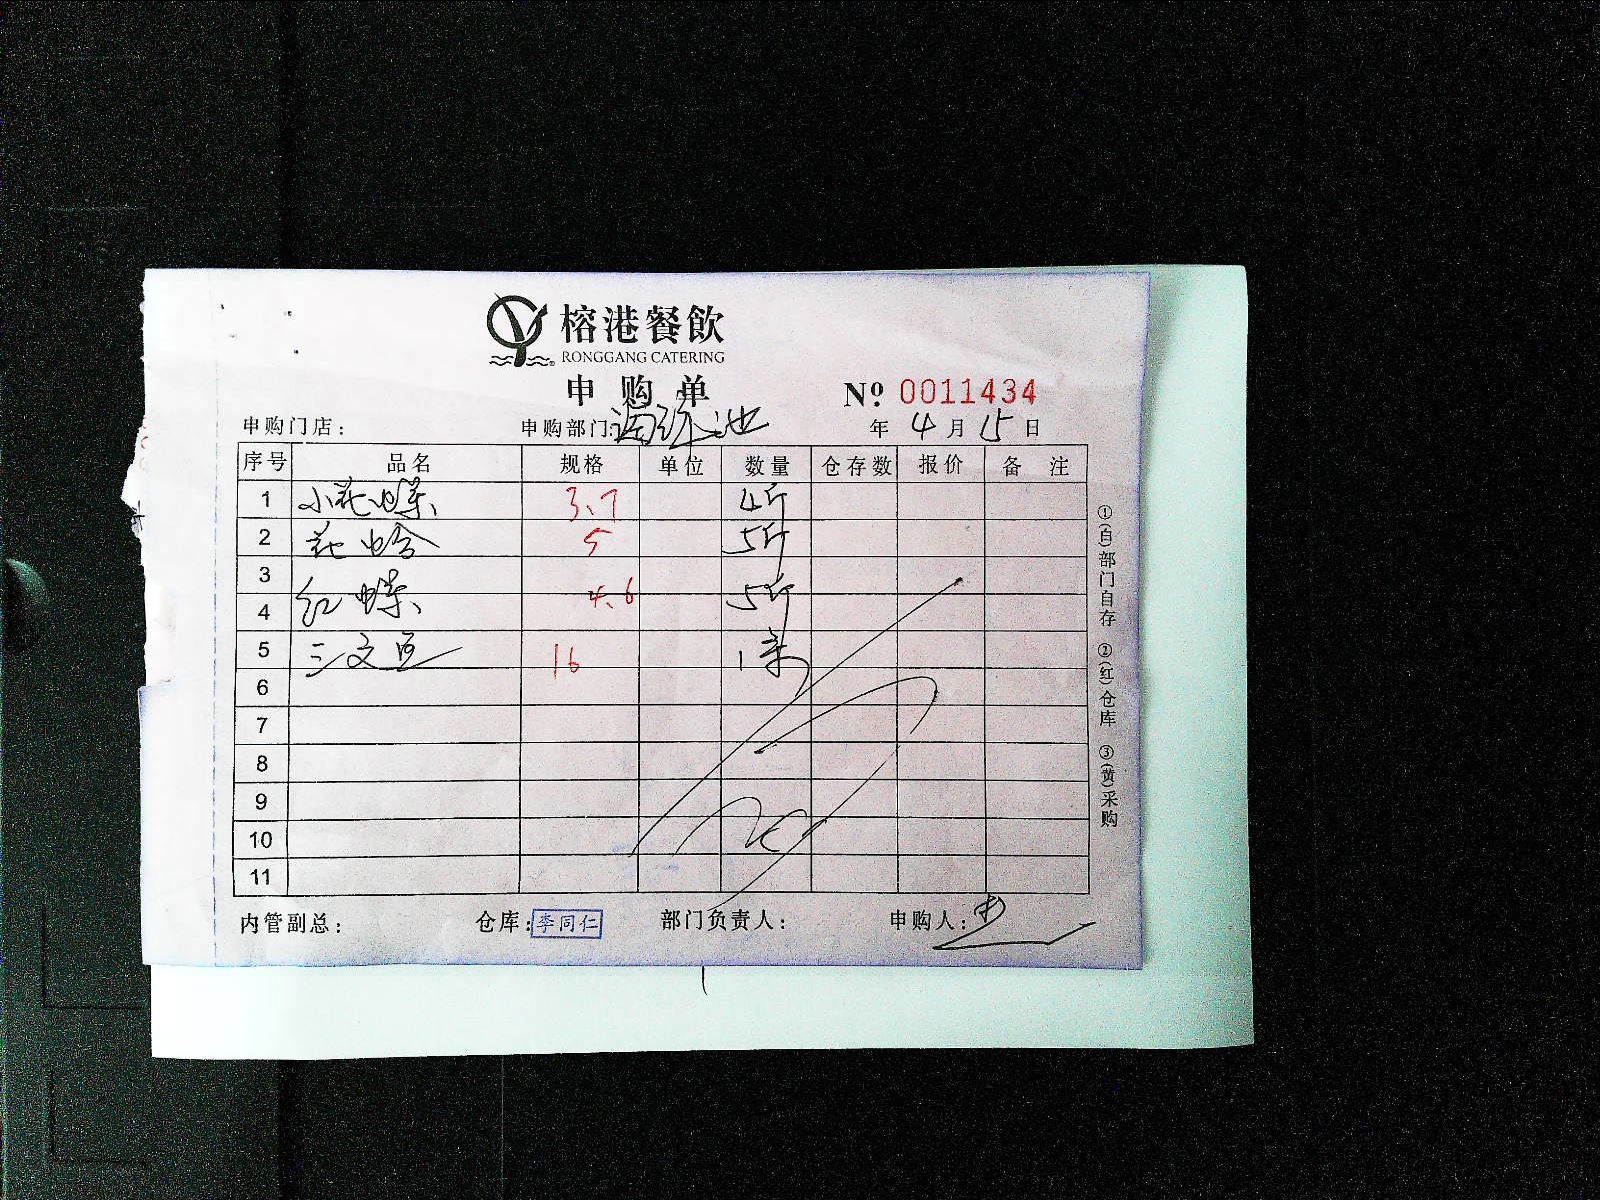 榕港餐飲
RONGGANG CATERING
申购单 № 0011434
申购门店： 申购部门： 池 年 4 月 15 日
序号 品名 规格 单位 数量 仓存数 报价 备注
1 小花螺 3.7 4斤
2 花蛤 5 5斤
3
红螺 4.6 5斤
4
5 三文鱼 16 1条
6
7
8
9
10
11
内管副总： 仓库：李同仁 部门负责人： 申购人：
①(白)部门自存 ②(红)仓库 ③(黄)采购